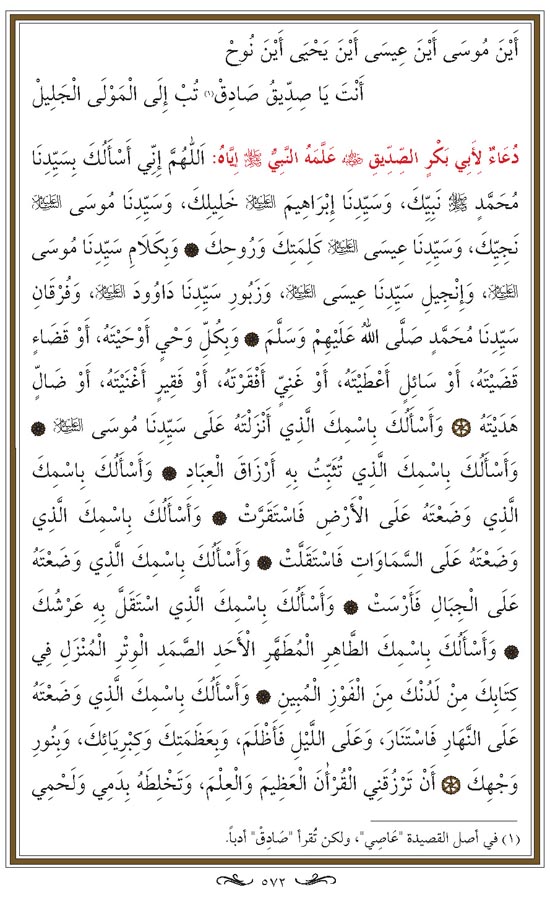 أَيْنَ مُوسَى أَيْنَ عِيسَى أَيْنَ يَحْيَى أَيْنَ نُوحْ
أَنْتَ يَا صِدِّيقُ صَادِقْ(١) تُبْ إِلَى الْمَوْلَى الْجَلِيلْ
دُعَاءٌ لِأَبِي بَكْرٍ الصِّدِّيقِ ﷺ عَلَّمَهُ النَّبِيُّ ﷺ إِيَّاهُ: اَللّٰهُمَّ إِنِّي أَسْأَلُكَ بِسَيِّدِنَا
مُحَمَّدٍ ﷺ نَبِيِّكَ، وَسَيِّدِنَا إِبْرَاهِيمَ عَلَيْهِ السَّلَامُ خَلِيلِكَ، وَسَيِّدِنَا مُوسَى عَلَيْهِ السَّلَامُ
نَجِيِّكَ، وَسَيِّدِنَا عِيسَى عَلَيْهِ السَّلَامُ كَلِمَتِكَ وَرُوحِكَ وَبِكَلَامِ سَيِّدِنَا مُوسَى
عَلَيْهِ السَّلَامُ، وَإِنْجِيلِ سَيِّدِنَا عِيسَى عَلَيْهِ السَّلَامُ، وَزَبُورِ سَيِّدِنَا دَاوُودَ عَلَيْهِ السَّلَامُ، وَفُرْقَانِ
سَيِّدِنَا مُحَمَّدٍ صَلَّى اللّٰهُ عَلَيْهِمْ وَسَلَّمَ وَبِكُلِّ وَحْيٍ أَوْحَيْتَهُ، أَوْ قَضَاءٍ
قَضَيْتَهُ، أَوْ سَائِلٍ أَعْطَيْتَهُ، أَوْ غَنِيٍّ أَفْقَرْتَهُ، أَوْ فَقِيرٍ أَغْنَيْتَهُ، أَوْ ضَالٍّ
هَدَيْتَهُ وَأَسْأَلُكَ بِاسْمِكَ الَّذِي أَنْزَلْتَهُ عَلَى سَيِّدِنَا مُوسَى عَلَيْهِ السَّلَامُ
وَأَسْأَلُكَ بِاسْمِكَ الَّذِي تُثَبِّتُ بِهِ أَرْزَاقَ الْعِبَادِ وَأَسْأَلُكَ بِاسْمِكَ
الَّذِي وَضَعْتَهُ عَلَى الْأَرْضِ فَاسْتَقَرَّتْ وَأَسْأَلُكَ بِاسْمِكَ الَّذِي
وَضَعْتَهُ عَلَى السَّمَاوَاتِ فَاسْتَقَلَّتْ وَأَسْأَلُكَ بِاسْمِكَ الَّذِي وَضَعْتَهُ
عَلَى الْجِبَالِ فَأَرْسَتْ وَأَسْأَلُكَ بِاسْمِكَ الَّذِي اسْتَقَلَّ بِهِ عَرْشُكَ
وَأَسْأَلُكَ بِاسْمِكَ الطَّاهِرِ الْمُطَهَّرِ الْأَحَدِ الصَّمَدِ الْوِتْرِ الْمُنْزَلِ فِي
كِتَابِكَ مِنْ لَدُنْكَ مِنَ الْفَوْزِ الْمُبِينِ وَأَسْأَلُكَ بِاسْمِكَ الَّذِي وَضَعْتَهُ
عَلَى النَّهَارِ فَاسْتَنَارَ، وَعَلَى اللَّيْلِ فَأَظْلَمَ، وَبِعَظَمَتِكَ وَكِبْرِيَائِكَ، وَبِنُورِ
وَجْهِكَ أَنْ تَرْزُقَنِي الْقُرْاٰنَ الْعَظِيمَ وَالْعِلْمَ، وَتَخْلِطَهُ بِدَمِي وَلَحْمِي
(١) في أصل القصيدة "عَاصِي"، ولكن تُقرأ "صَادِقْ" أدباً.
٥٧٢